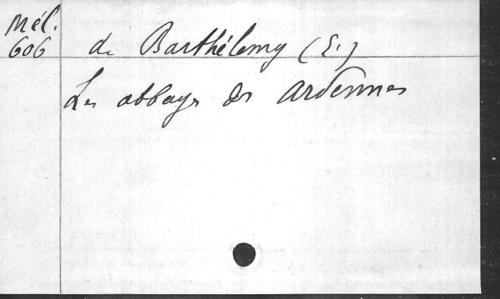 Mél.
606
de Barthélemy (E.)
Les abbayes des Ardennes